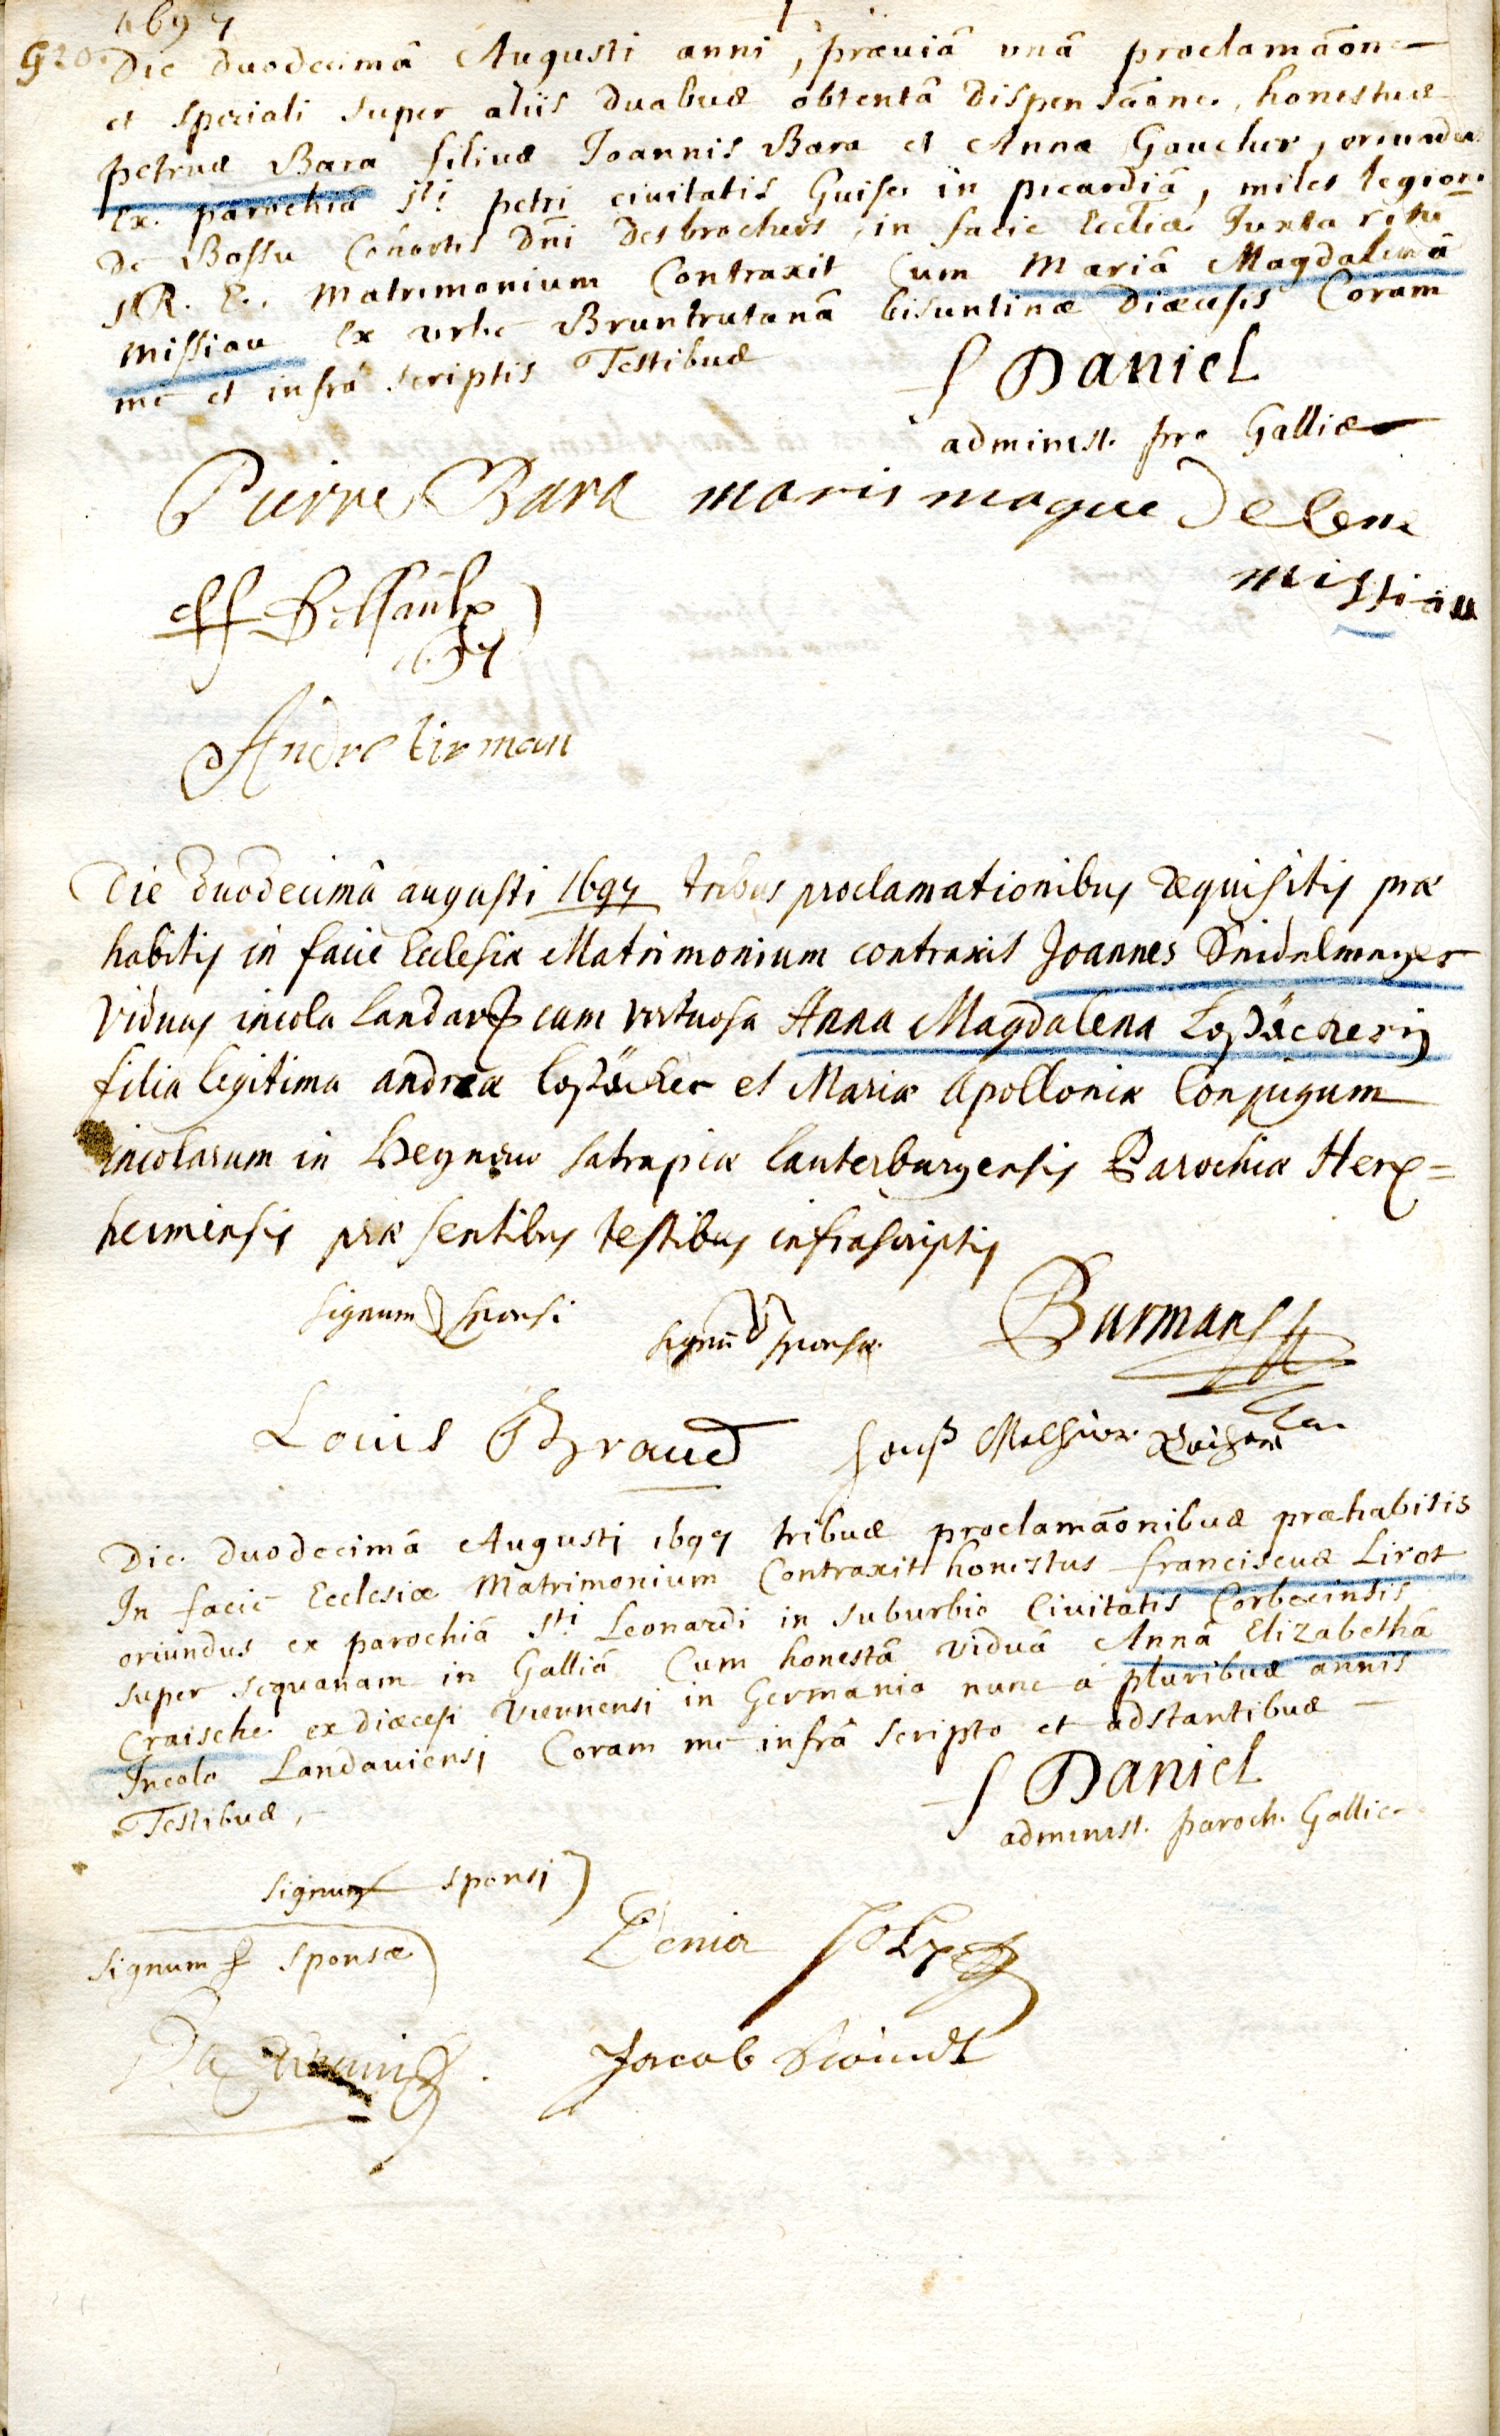 1697
Die duodecimâ Augusti anni, præviâ vnâ proclamãone
et speciali super aliis duabus obtentâ dispensãone, honestus
petrus Bara filius Joannis Bara et Annæ Gaucher, oriundus
Ex parochiâ Sti petri ciuitatis Guisæ in picardiâ, miles legionis
De Bossu Cohortis Dñi Desbrochers, in facie Eccliæ Juxta ritũ
S. R. E. Matrimonium Contraxit Cum Mariâ Magdalenâ
Missiau Ex vrbe Bruntrutanâ bisuntinæ Diœcesis Coram
me et infrà scriptis Testibus
f Daniel
administ. pro Gallis
Pierre Bara marie mague Delene
missiau
1697
Andre tirman
Die duodecimâ augusti 1697 tribus proclamationibus requisitis præ
habitis in facie Ecclesiæ Matrimonium contraxit Joannes Knidelmeyer
Viduus incola Landavij cum virtuosa Anna Magdalena
filia legitima andreæ et Mariæ Apolloniæ Conjugum
incolarum in Heynaw satrapiæ lauterburgensis Parochiæ Herx=
heimensis præsentibus testibus infrascriptis
Signum sponsi
signũ sponsæ
Burman
Louis Braud Melchior
Die duodecimâ Augusti 1697 tribus proclamãonibus præhabitis
In facie Ecclesiæ Matrimonium Contraxit honestus franciscus Lirot
oriundus ex parochiâ Sti Leonardi in suburbio Ciuitatis Corbexinsis
super sequanam in Galliâ Cum honestâ viduâ Annâ Elizabethâ
Craische ex diœcesi Viennensi in Germania nunc à pluribus annis
Incola Landauiensi Coram me infrà scripto et adstantibus
Testibus,
f Daniel
administ. paroch. Gallic
signum sponsi
signum sponsæ
Jacob